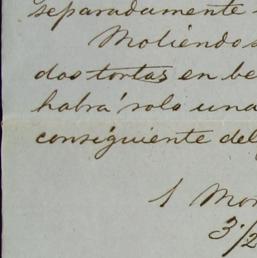 separadamente
Moliéndos
dos tortas en be
habrá solo una
consiguiente del
1 Mon
3./2